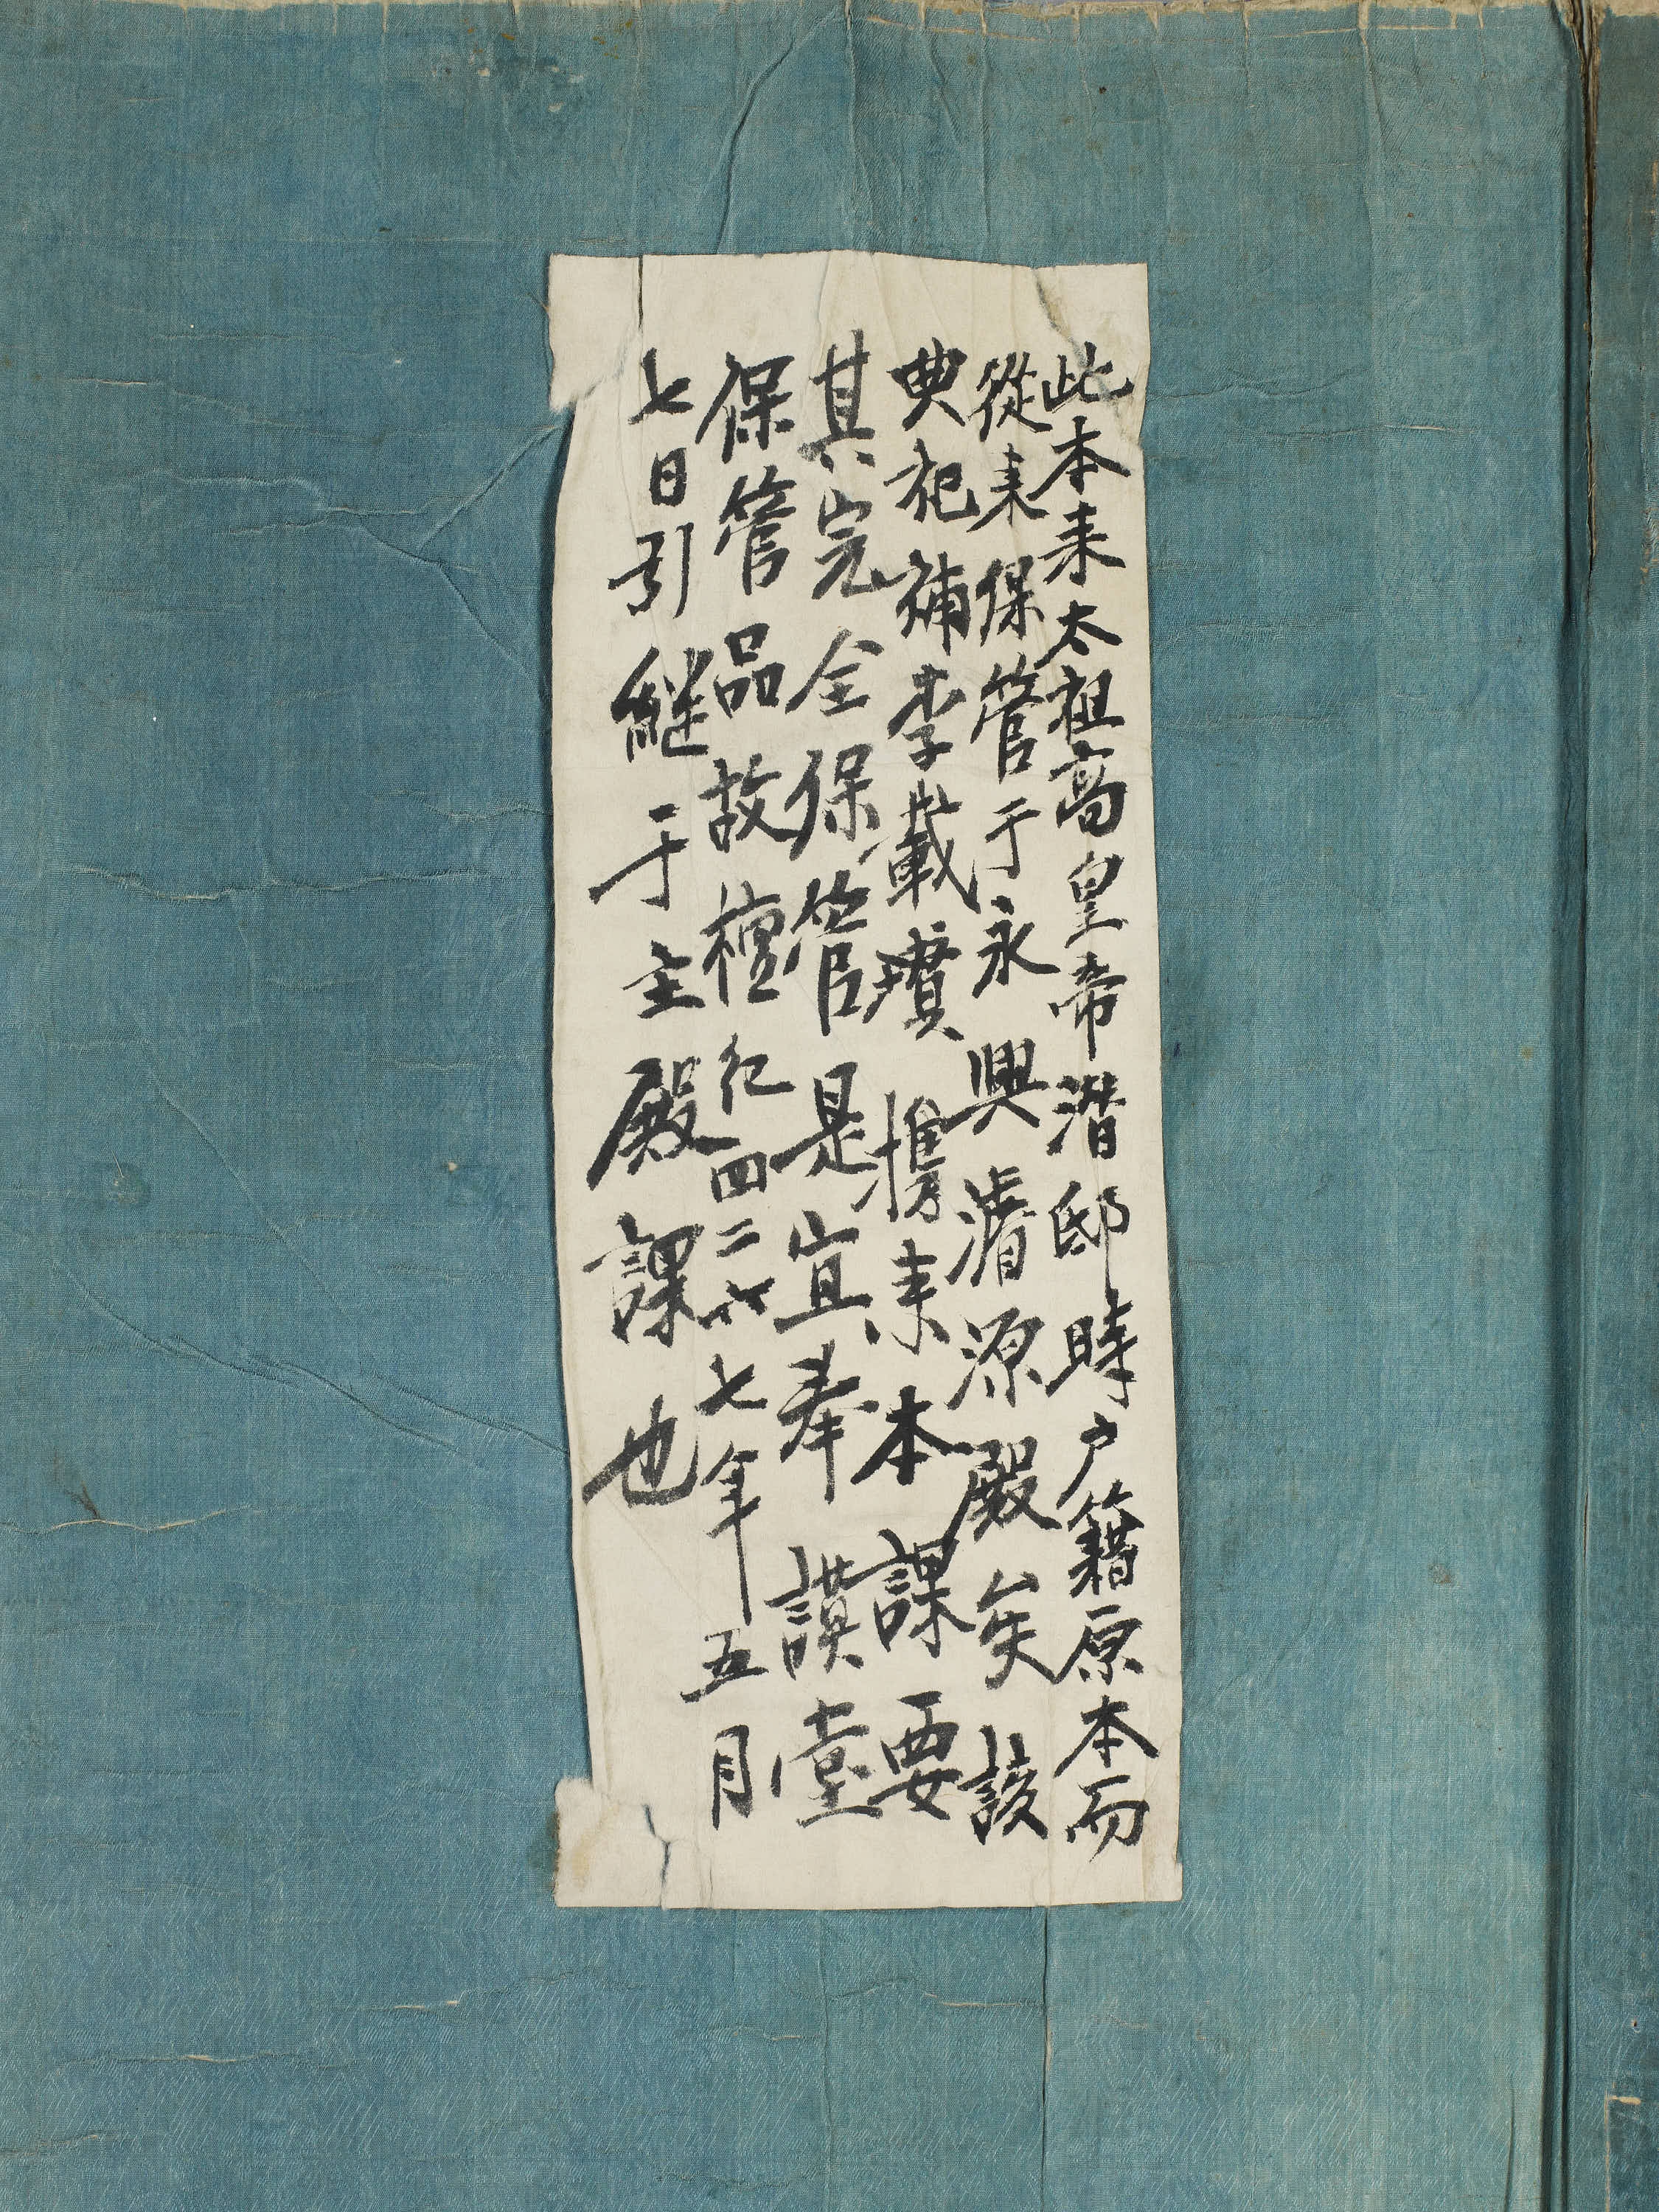 此本来太祖高皇帝潜邸時户籍原本而
從来保管于永興濬源殿矣該
典祀補李載瓚携来本課要
其完全保管是宜奉謨堂
保管品故檀紀四二六七年五月
七日引継于主殿課也